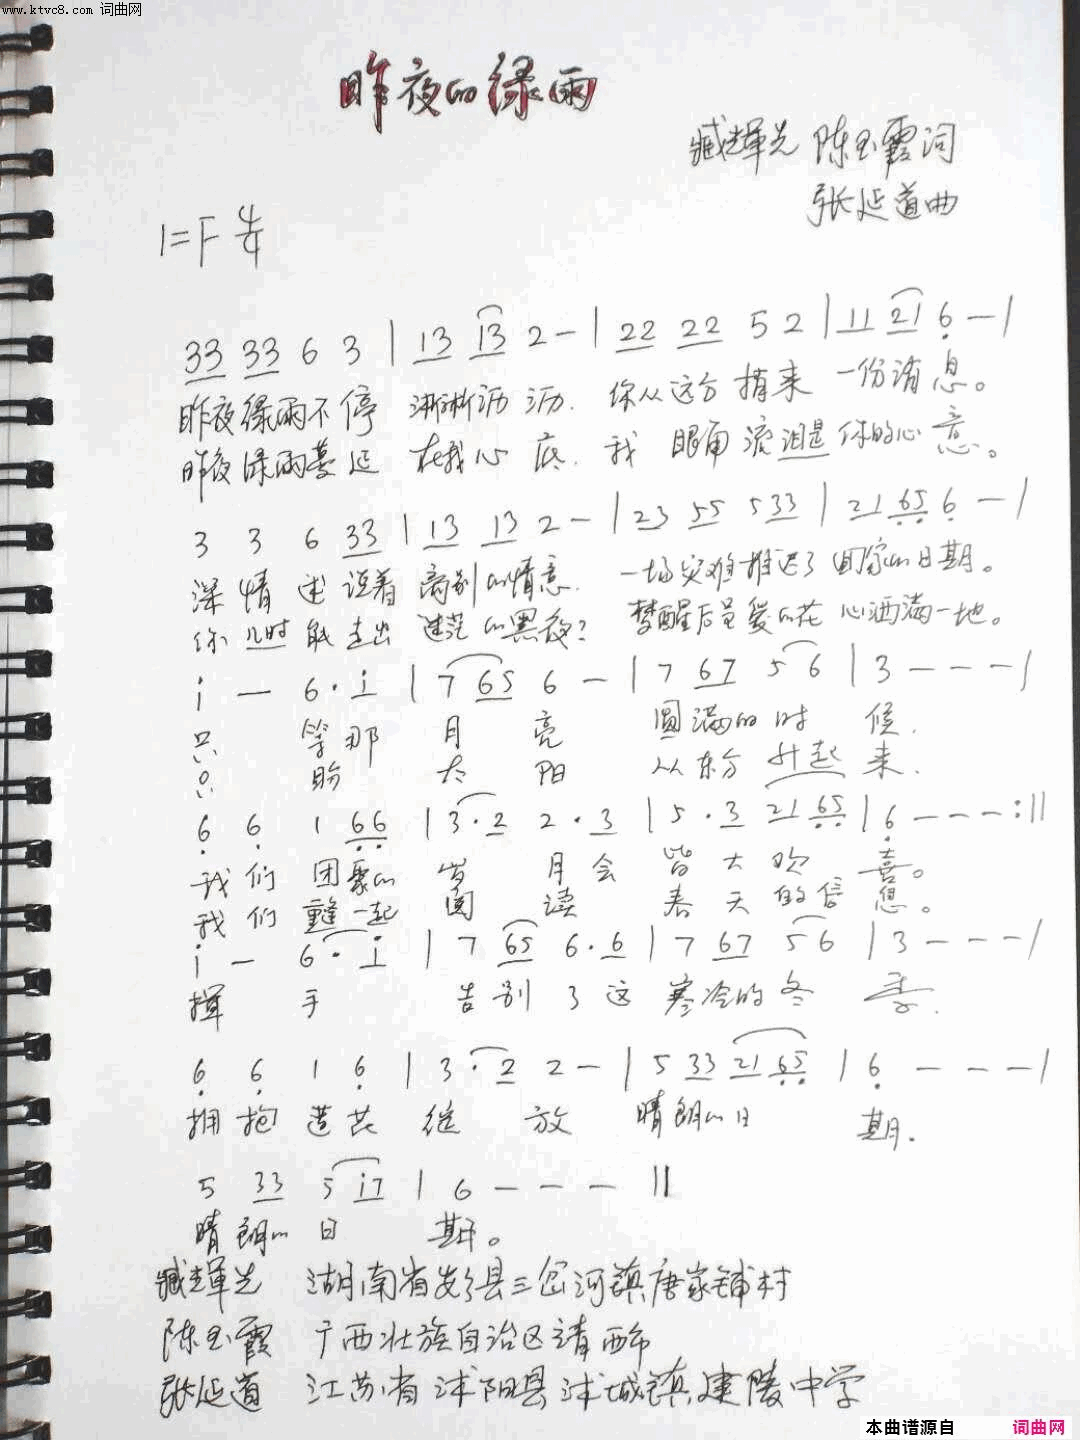 www.ktvc8.com 词曲网
昨夜的绿雨
臧辉先 陈玉霞词
张延道曲
1=F 4/4
33 33 6 3 | 13 13 2 — | 22 22 5 2 | 11 21 6 — |
昨夜绿雨不停 淅淅沥沥. 你从远方 捎来 一份消息。
昨夜绿雨蔓延 在我心底. 我 眼角流泪是你的心意。
3 3 6 33 | 13 13 2 — | 23 55 5 33 | 21 65 6 — |
深情述说着离别的情意. 一场灾难推迟了回家的日期。
你几时能走出迷茫的黑夜? 梦醒后是爱的花心洒满一地。
i — 6· i | 7 65 6 — | 7 67 5 6 | 3 — — — |
只 等那 月 亮 圆满的时 候.
只 盼 太 阳 从东方升起来.
6 6 1 66 | 3·2 2·3 | 5·3 21 65 | 6 — — — :||
我们团聚的岁 月会皆大欢 喜。
我们重逢一起阅 读 春天的信 息。
i — 6· i | 7 65 6·6 | 7 67 5 6 | 3 — — — |
挥 手 告别了这 寒冷的冬 季.
6 6 1 6 | 3·2 2 — | 5 33 21 65 | 6 — — — |
拥抱 花 绽 放 晴朗的日 期.
5 33 5 i7 | 6 — — — ||
晴朗的日 期。
臧辉先 湖南省 县三岔河镇唐家铺村
陈玉霞 广西壮族自治区靖西市
张延道 江苏省沭阳县沭城镇建陵中学
本曲谱源自 词曲网